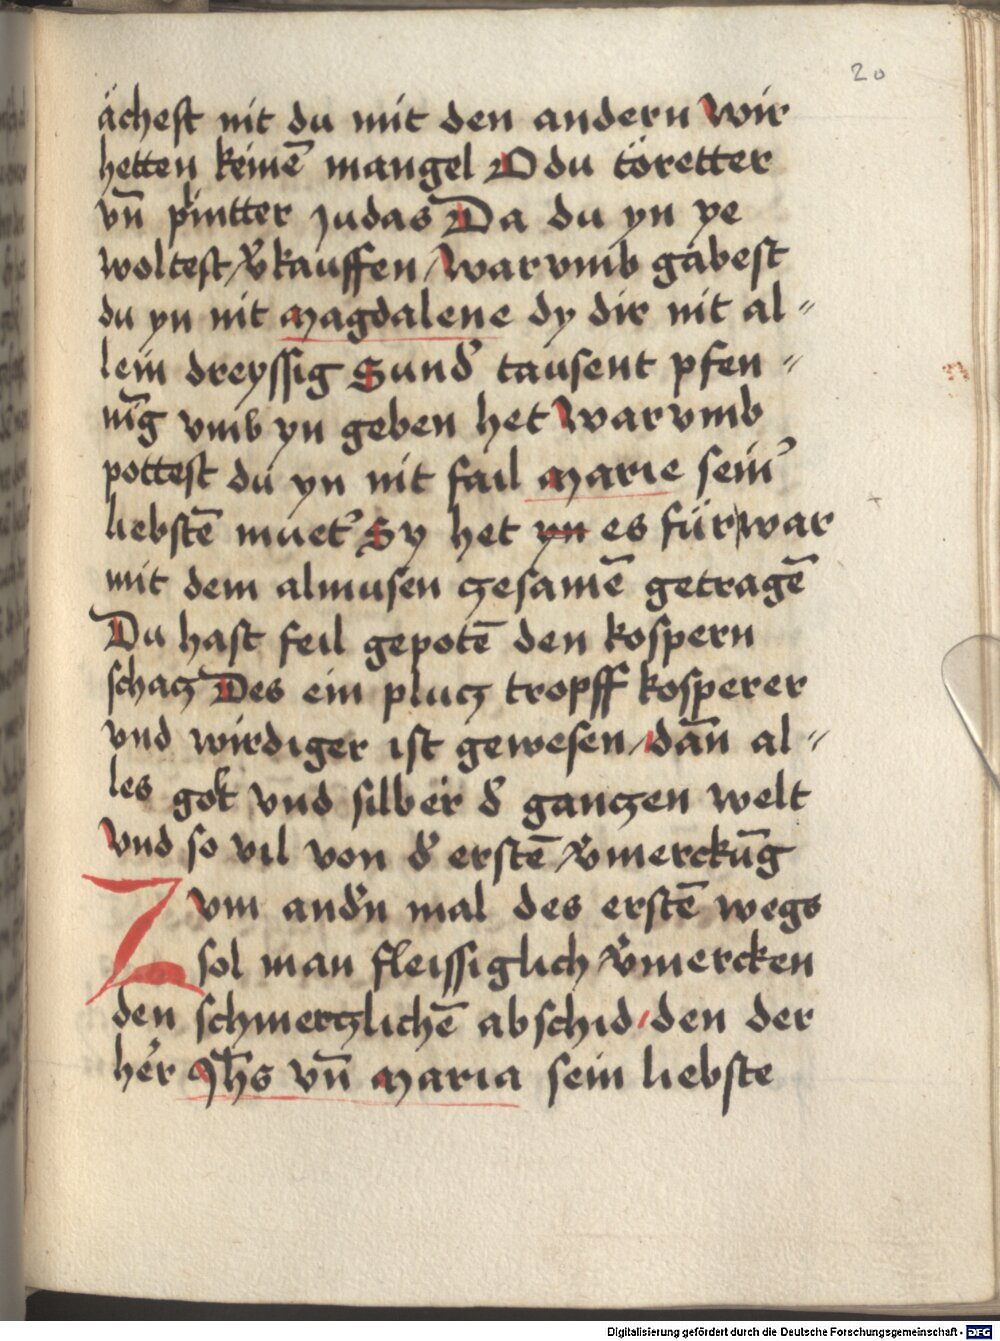 20
ächest nit du mit den andern Wir
hetten keinē mangel O du töretter
vn̄ plintter judas Da du yn ye
woltest / v̾kauffen / Warvmb gäbest
du yn nit Magdalene dy dir nit al=
lein dreyssig Sund̾ tausent pfen=
nīg vmb yn geben het Warvmb
pottest du yn nit fail Marie sein̾
liebstē muet̾ Sy het yn es für war
mit dem almusen zesamē getragē
Du hast feil gepotē den kospern
schacz Des ein plucz tropff kosperer
vnd wirdiger ist gewesen / dan̄ al=
les golt vnd silber d̾ ganczen welt
Vnd so vil von d̾ erstē v̾merckūg
Zvm and̾n mal des erstē wegs
sol man fleissiglich v̾mercken
den schmerczlichē abschid / den der
her̾ Jhs vn̄ Maria sein liebste
Digitalisierung gefördert durch die Deutsche Forschungsgemeinschaft - DFG